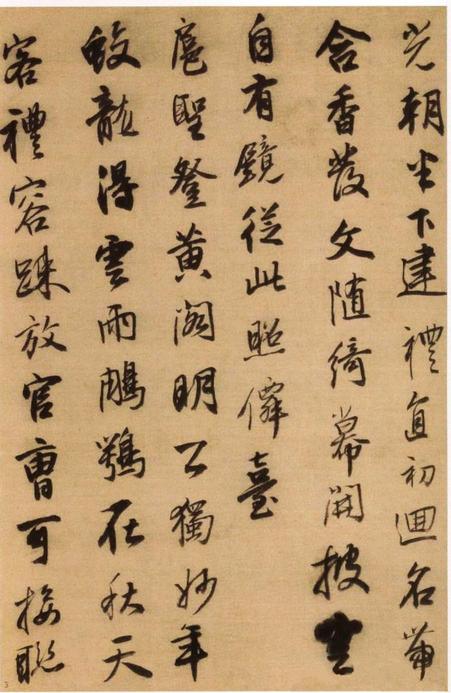 光朝半下建禮直初迴名帶
含香發文隨綺幕開披雲
自有鏡從此照僊臺
扈聖登黃閣明公獨妙年
蛟龍得雲雨鵰鶚在秋天
客禮容踈放官曹可接聯